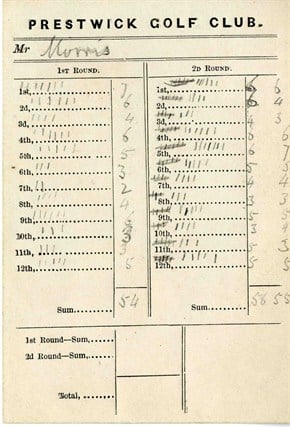 PRESTWICK GOLF CLUB.
Mr Morris
1ST ROUND.
1st, 7
2d, 6
3d, 4
4th, 6
5th, 5
6th, 3
7th, 2
8th, 4
9th,
10th,
11th, 3
12th, 5
Sum 54
2D ROUND.
1st, 6
2d, 4
3d, 4 3
4th, 6
5th, 6 7
6th, 5 4
7th, 4 4
8th, 3 3
9th, 5 5
10th, 3 4
11th, 5
12th, 5
Sum 58 55
1st Round—Sum,
2d Round—Sum,
Total,